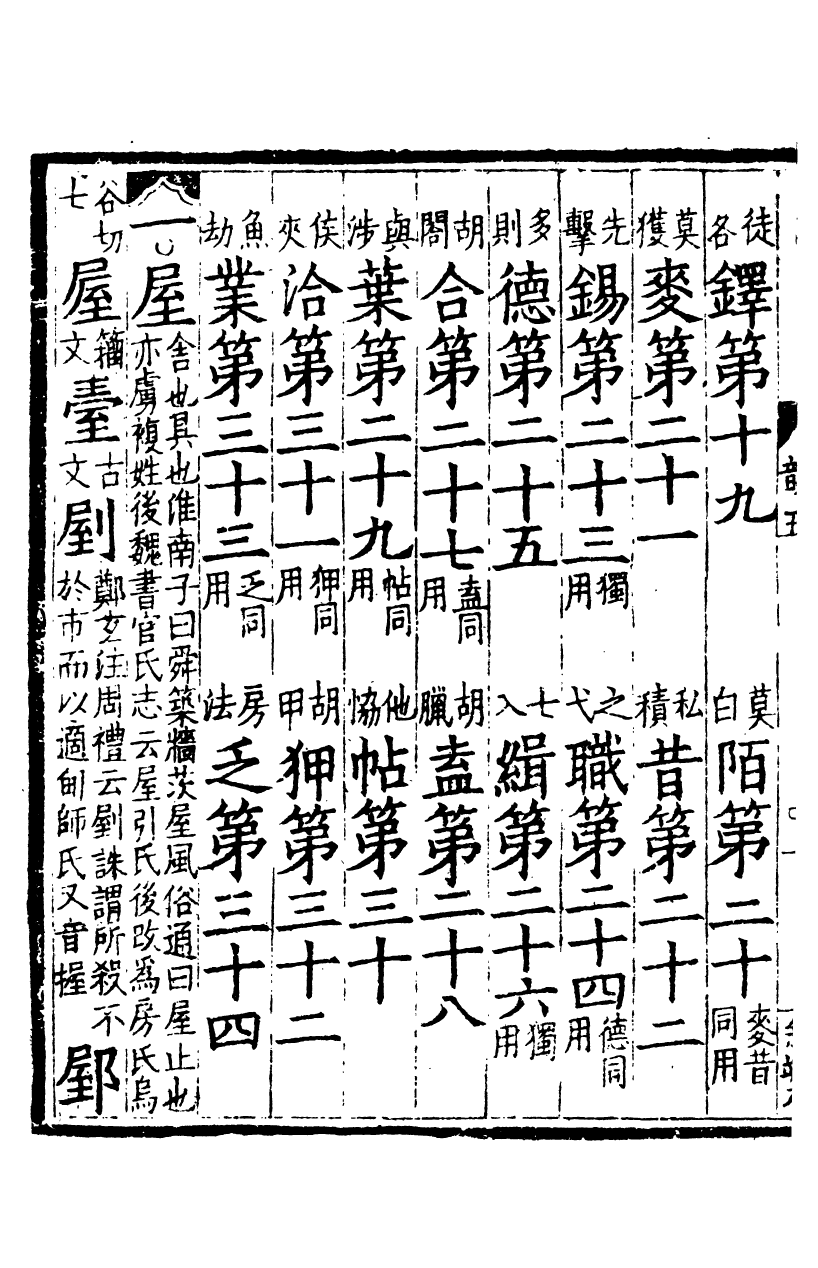 徒各鐸第十九 莫白陌第二十麥昔同用
莫獲麥第二十一 私積昔第二十二
先擊錫第二十三獨用 之弋職第二十四德同用
多則德第二十五 七入緝第二十六獨用
胡閤合第二十七盍同用 胡臘盍第二十八
與涉葉第二十九帖同用 他協帖第三十
侯夾洽第三十一狎同用 胡甲狎第三十二
魚劫業第三十三乏同用 房法乏第三十四
一屋舍也具也淮南子曰舜築牆茨屋風俗通曰屋止也亦虜複姓後魏書官氏志云屋引氏後改為房氏烏
谷切七𡲬籀文𦤿古文剭鄭玄注周禮云剭誅謂所殺不於市而以適甸師氏又音握𨞕